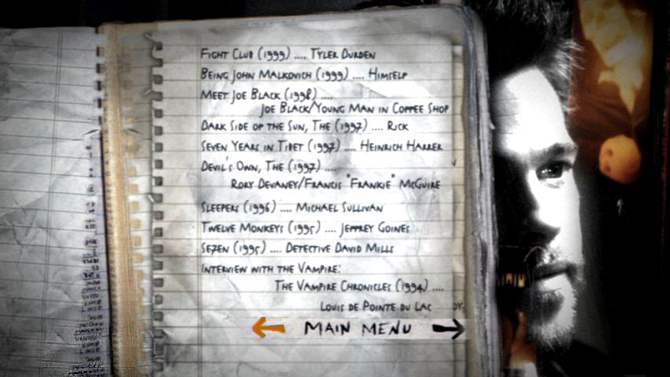 Fight Club (1999) .... Tyler Durden
Being John Malkovich (1999) .... Himself
Meet Joe Black (1998) ....
Joe Black/Young Man in Coffee Shop
Dark Side of the Sun, The (1997) .... Rick
Seven Years in Tibet (1997) .... Heinrich Harrer
Devil's Own, The (1997) ....
Rory Devaney/Francis "Frankie" McGuire
Sleepers (1996) .... Michael Sullivan
Twelve Monkeys (1995) .... Jeffrey Goines
Se7en (1995) .... Detective David Mills
Interview with the Vampire:
The Vampire Chronicles (1994) ....
Louis de Pointe du Lac
MAIN MENU